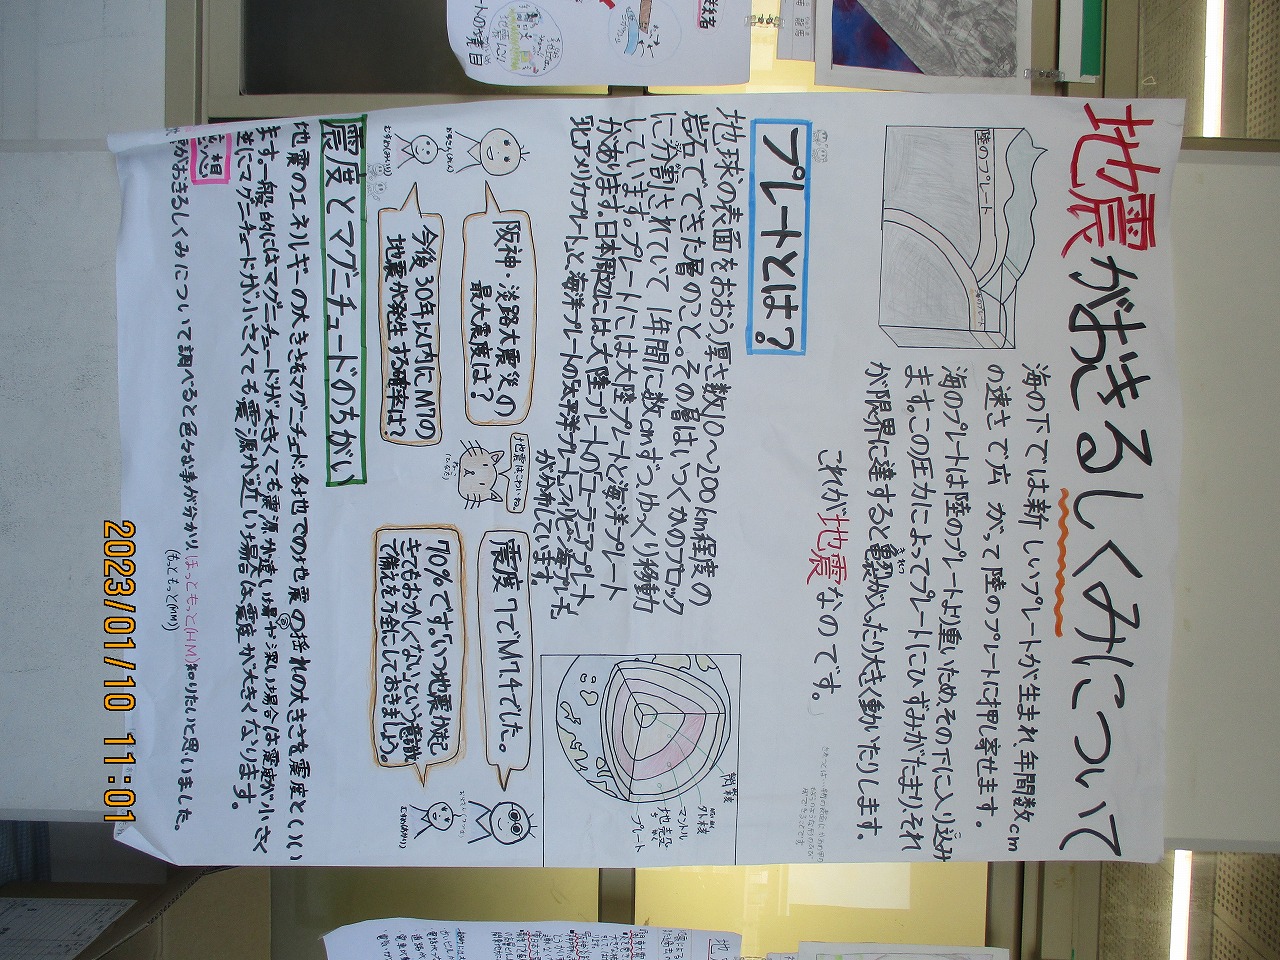 地震がおきるしくみについて
海の下では新しいプレートが生まれ、年間数cm
の速さで広がって陸のプレートに押し寄せます。
海のプレートは陸のプレートより重いため、その下に入り込み
ます。この圧力によってプレートにひずみがたまりそれ
が限界に達すると亀裂が入ったり大きく動いたりします。
これが地震なのです。
陸のプレート
海のプレート
プレートとは?
地球の表面をおおう厚さ数10～200km程度の
岩石でできた層のこと。その層はいくつかのブロック
に分割されていて1年間に数cmずつ、ゆっくり移動
しています。プレートには大陸プレートと海洋プレート
があります。日本周辺には大陸プレートのユーラシアプレート
北アメリカプレートと海洋プレートの太平洋プレート、フィリピン海プレート
が分布しています。
内核
外核
マントル
地殻
プレート
阪神・淡路大震災の
最大震度は?
震度7でM7.4でした。
今後30年以内にM7の
地震が発生する確率は?
70%です。「いつ地震が起
きてもおかしくない」という意識
で備えを万全にしておきましょう。
地震はこわいね。
震度とマグニチュードのちがい
地震のエネルギーの大きさをマグニチュード、各地での地震の揺れの大きさを震度といい
ます。一般的にはマグニチュードが大きくても震源が遠い場合や深い場合は震度が小さく
逆にマグニチュードが小さくても、震源が近い場合は震度が大きくなります。
感想
地震がおきるしくみについて調べると色々な事が分かりもっともっと(MM)知りたいと思いました。
2023/01/10 11:01